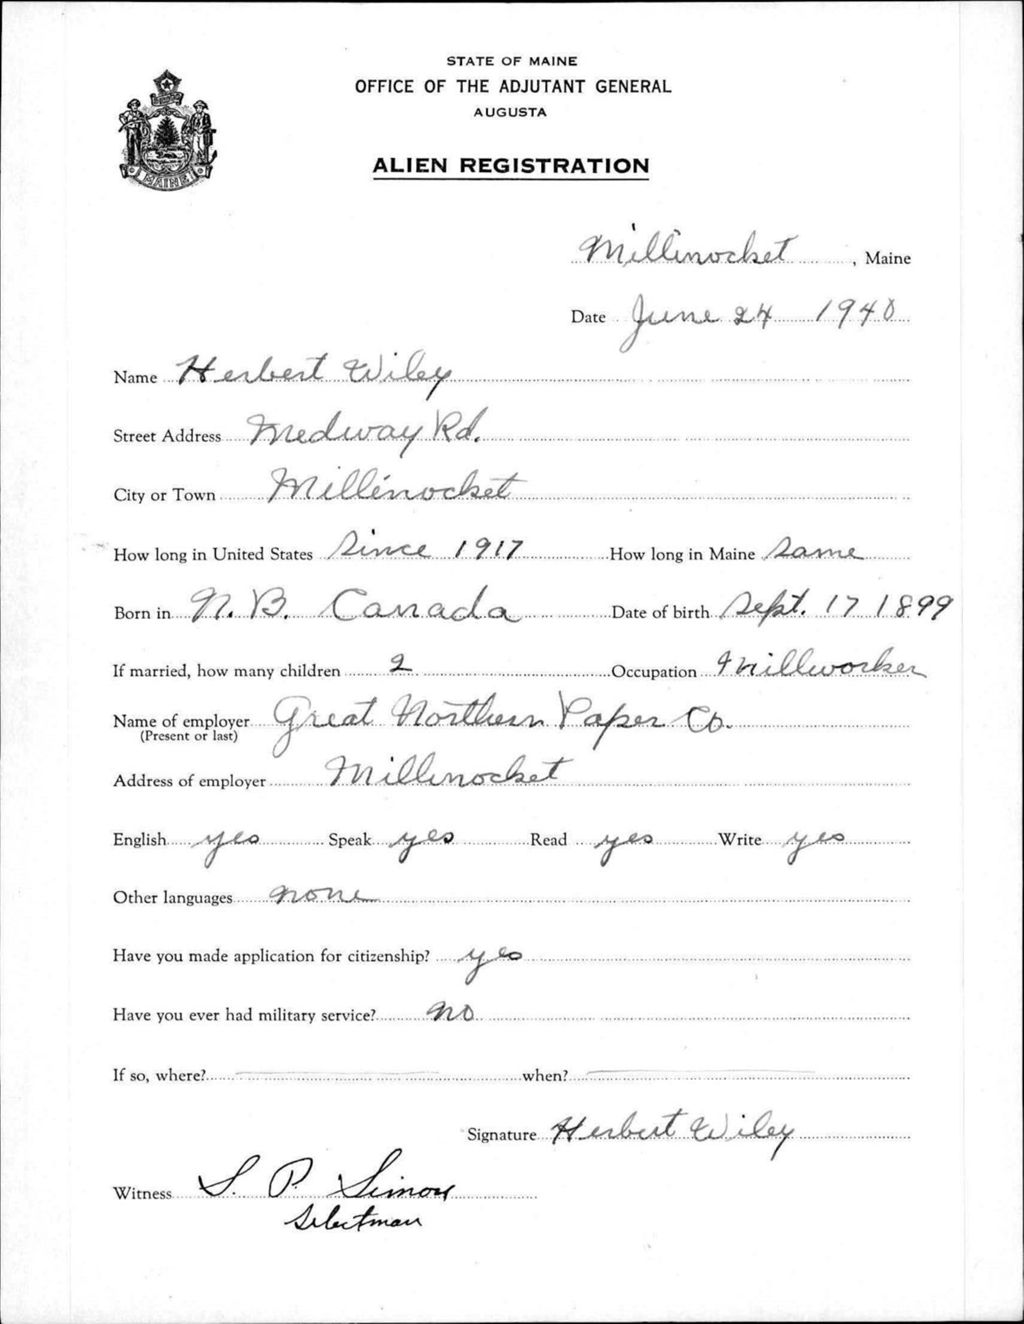 STATE OF MAINE
OFFICE OF THE ADJUTANT GENERAL
AUGUSTA
ALIEN REGISTRATION
MAINE
Millinocket, Maine
Date June 24 1940
Name Herbert Wiley
Street Address Medway Rd.
City or Town Millinocket
How long in United States Since 1917 How long in Maine Same
Born in N. B. Canada Date of birth Sept. 17 1899
If married, how many children 2 Occupation Millworker
Name of employer Great Northern Paper Co.
(Present or last)
Address of employer Millinocket
English yes Speak yes Read yes Write yes
Other languages none
Have you made application for citizenship? yes
Have you ever had military service? no
If so, where? when?
Signature Herbert Wiley
Witness S. P. Simon
Selectman